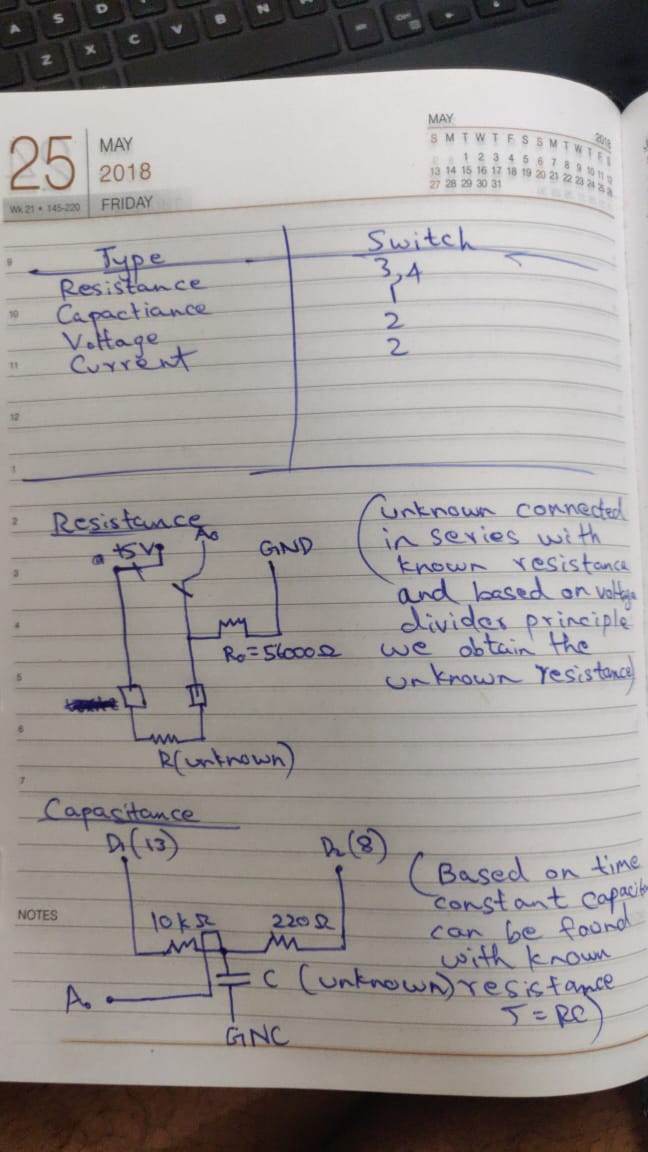 A S D
Z X C V B N
25
MAY
2018
FRIDAY
Wk 21 • 145-220
MAY 2018
S M T W T F S S M T W T F S
1 2 3 4 5 6 7 8 9 10 11 12
13 14 15 16 17 18 19 20 21 22 23 24 25 26
27 28 29 30 31
Type Switch
9
Resistance 3,4
10
Capactiance 1
Voltage 2
11
Current 2
12
1
2
Resistance
A₀
+5V
GND
3
4
R₀=56000Ω
5
6
R(unknown)
7
(unknown connected
in series with
known resistance
and based on voltage
divider principle
we obtain the
unknown resistance)
Capasitance
D₁(13) D₂(8)
NOTES
10kΩ 220Ω
A₀
C (unknown)
GNC
(Based on time
constant
can be found
with known
resistance
T = RC)